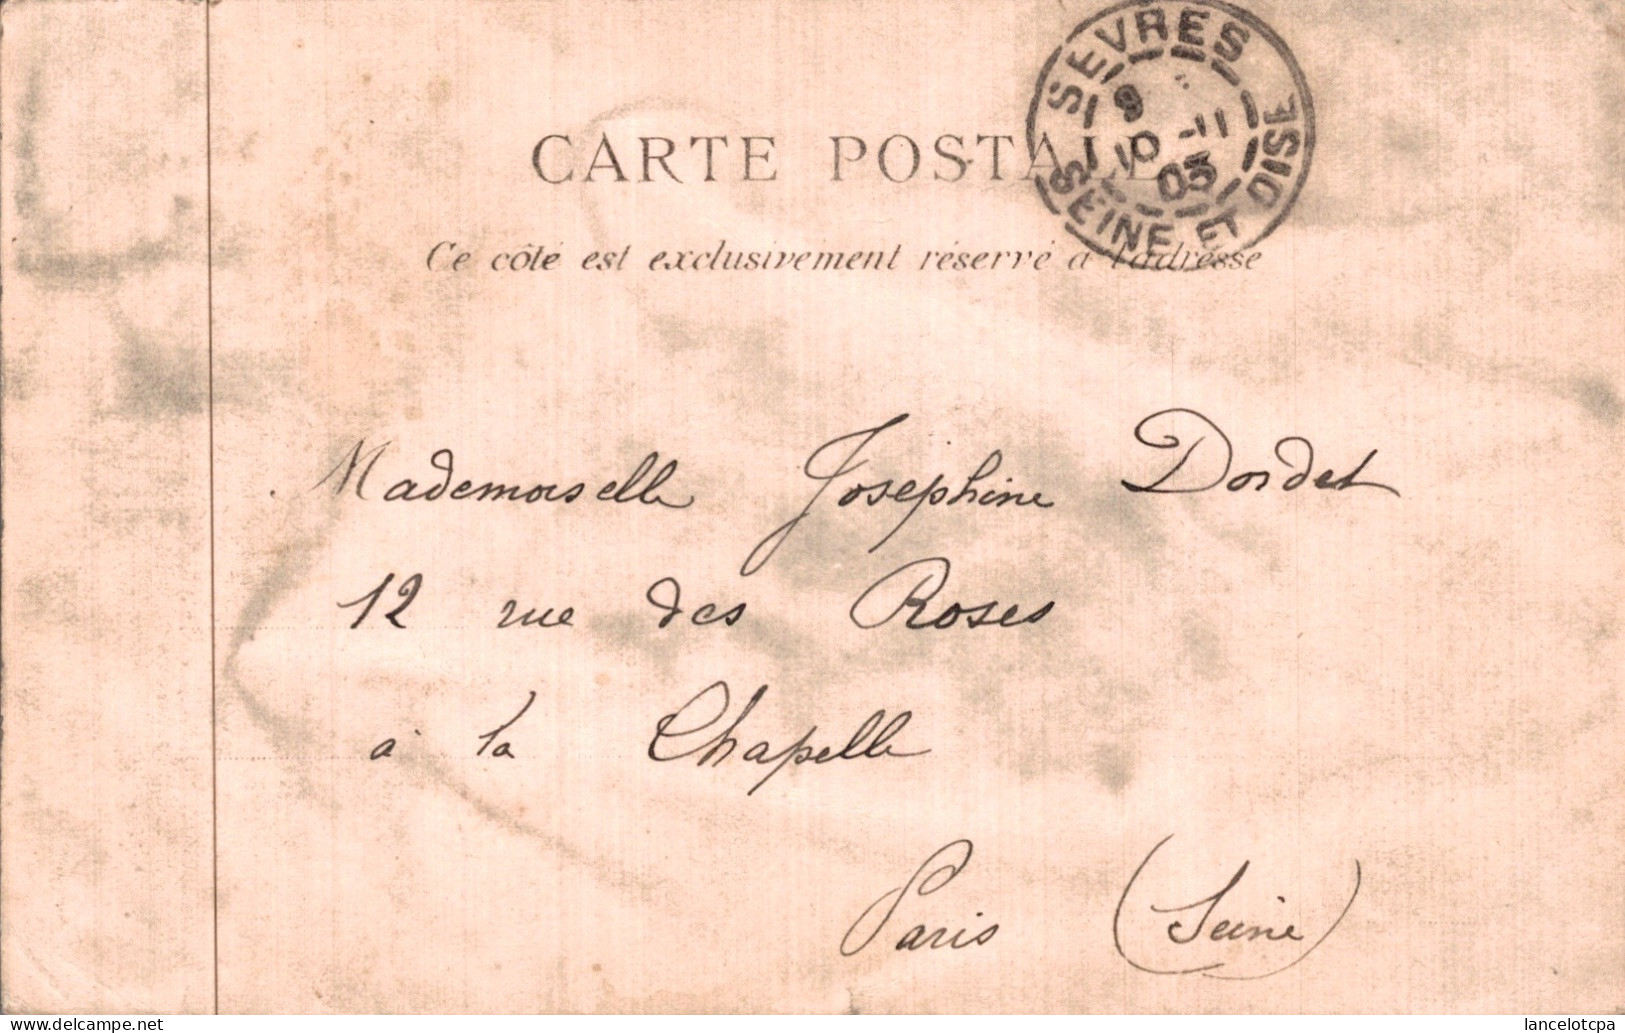 SEVRES
9
10 -11
03
SEINE ET OISE
CARTE POSTALE
Ce côté est exclusivement réservé à l'adresse
Mademoiselle Joséphine Dordet
12 rue des Roses
à la Chapelle
Paris (Seine)
lancelotcpa